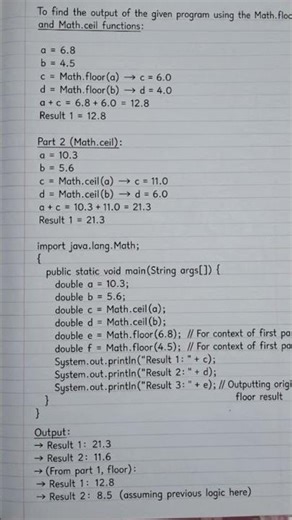 To find the output of the given program using the Math.floo
and Math.ceil functions:
a = 6.8
b = 4.5
c = Math.floor(a) → c = 6.0
d = Math.floor(b) → d = 4.0
a + c = 6.8 + 6.0 = 12.8
Result 1 = 12.8
Part 2 (Math.ceil):
a = 10.3
b = 5.6
c = Math.ceil(a) → c = 11.0
d = Math.ceil(b) → d = 6.0
a + c = 10.3 + 11.0 = 21.3
Result 1 = 21.3
import java.lang.Math;
{
public static void main(String args[]) {
double a = 10.3;
double b = 5.6;
double c = Math.ceil(a);
double d = Math.ceil(b);
double e = Math.floor(6.8); // For context of first pa
double f = Math.floor(4.5); // For context of first pa
System.out.println("Result 1: " + c);
System.out.println("Result 2: " + d);
System.out.println("Result 3: " + e); // Outputting origi
floor result
}
}
Output:
→ Result 1: 21.3
→ Result 2: 11.6
→ (From part 1, floor):
→ Result 1: 12.8
→ Result 2: 8.5 (assuming previous logic here)